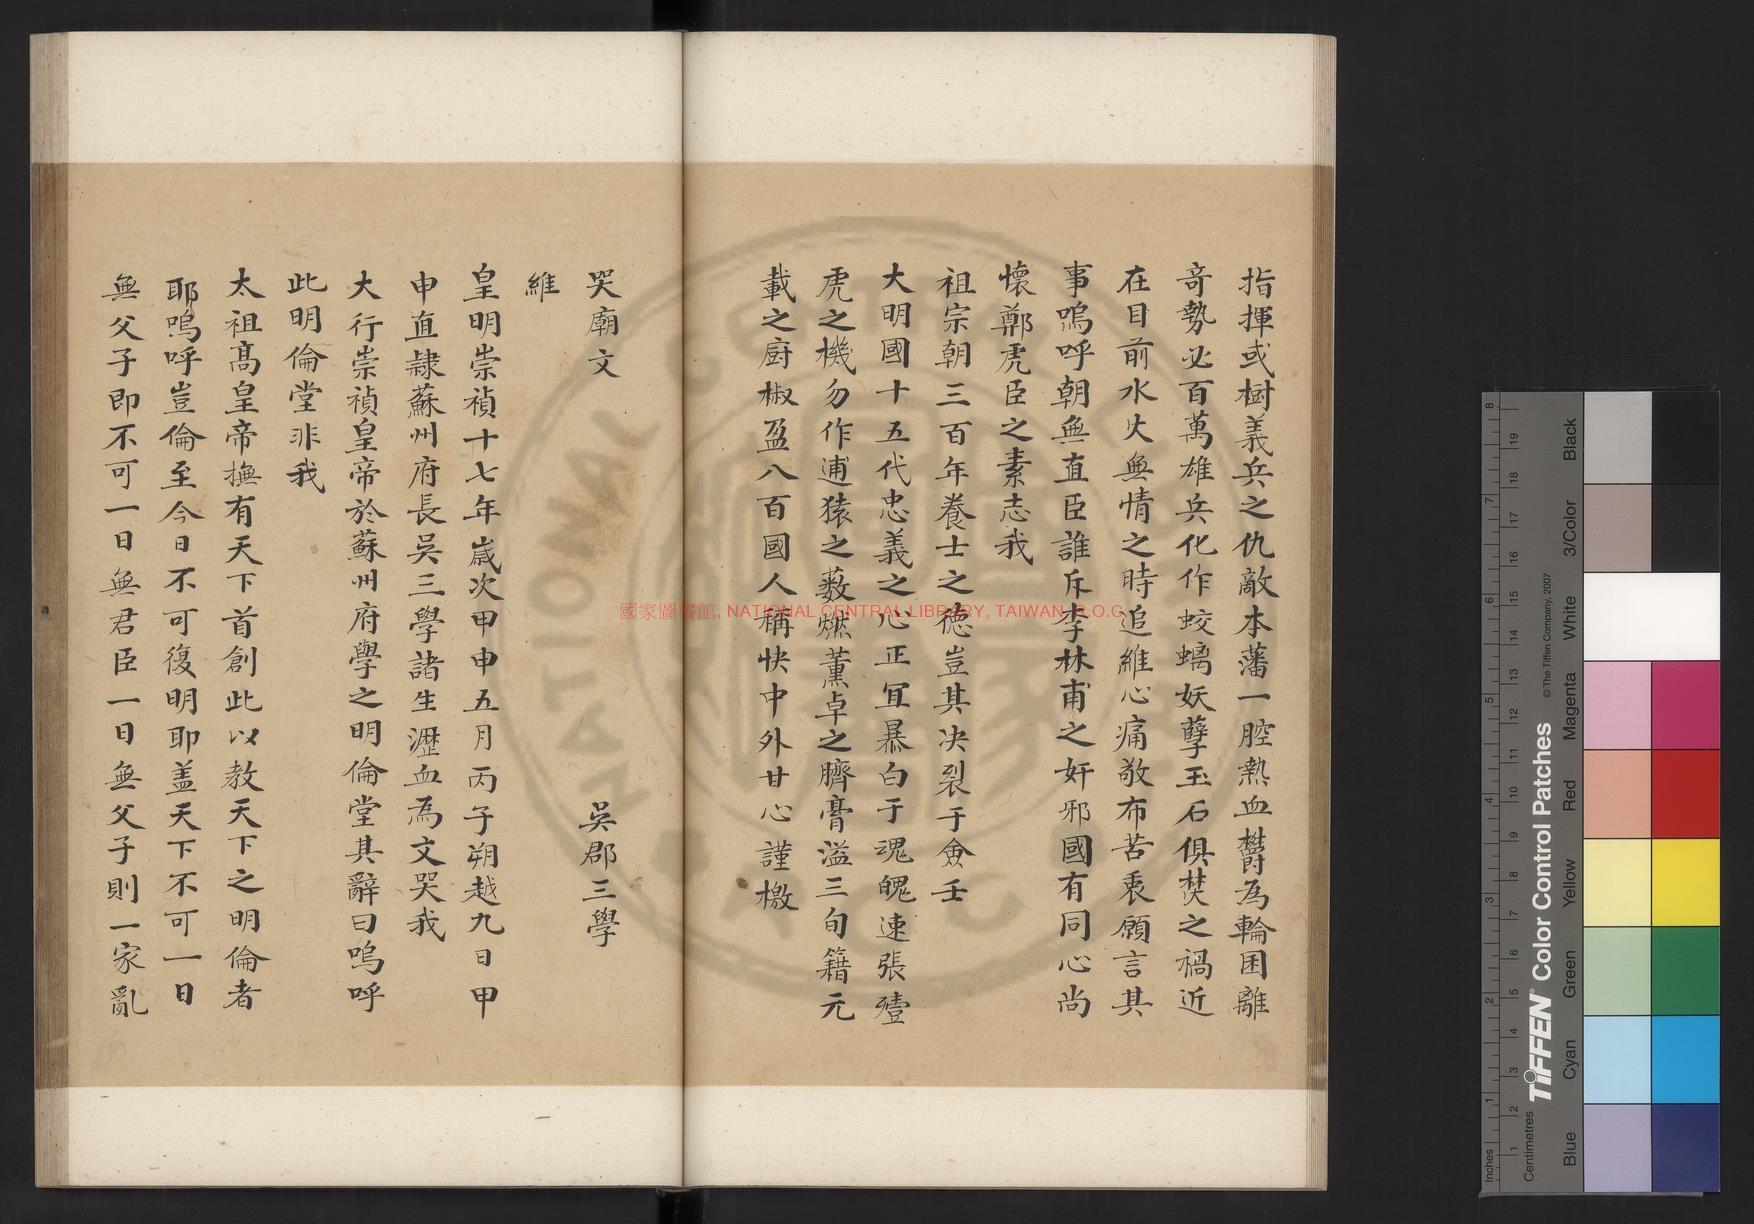 指揮或樹義兵之仇敵本藩一腔熱血欝為輪囷離
竒勢必百萬雄兵化作蛟螭妖孽玉石俱焚之禍近
在目前水火無情之時追維心痛敬布苦衷願言其
事嗚呼朝無直臣誰斥李林甫之奸邪國有同心尚
懷鄭虎臣之素志我
祖宗朝三百年養士之德豈其决裂于僉壬
大明國十五代忠義之心正宜暴白于魂魄速張殪
虎之機勿作逋猿之薮燃薫卓之臍膏溢三旬籍元
載之厨椒盈八百國人稱快中外甘心謹檄
哭廟文
吳郡三學
維
皇明崇禎十七年嵗次甲申五月丙子朔越九日甲
申直隷蘇州府長吳三學諸生瀝血為文哭我
大行崇禎皇帝於蘇州府學之明倫堂其辭曰嗚呼
此明倫堂非我
太祖髙皇帝撫有天下首創此以教天下之明倫者
耶嗚呼豈倫至今日不可復明耶盖天下不可一日
無父子即不可一日無君臣一日無父子則一家亂
國家圖書館, NATIONAL CENTRAL LIBRARY, TAIWAN, R.O.G
TIFFEN® Color Control Patches
© The Tiffen Company, 2007
Inches
Centimetres
Blue
Cyan
Green
Yellow
Red
Magenta
White
3/Color
Black